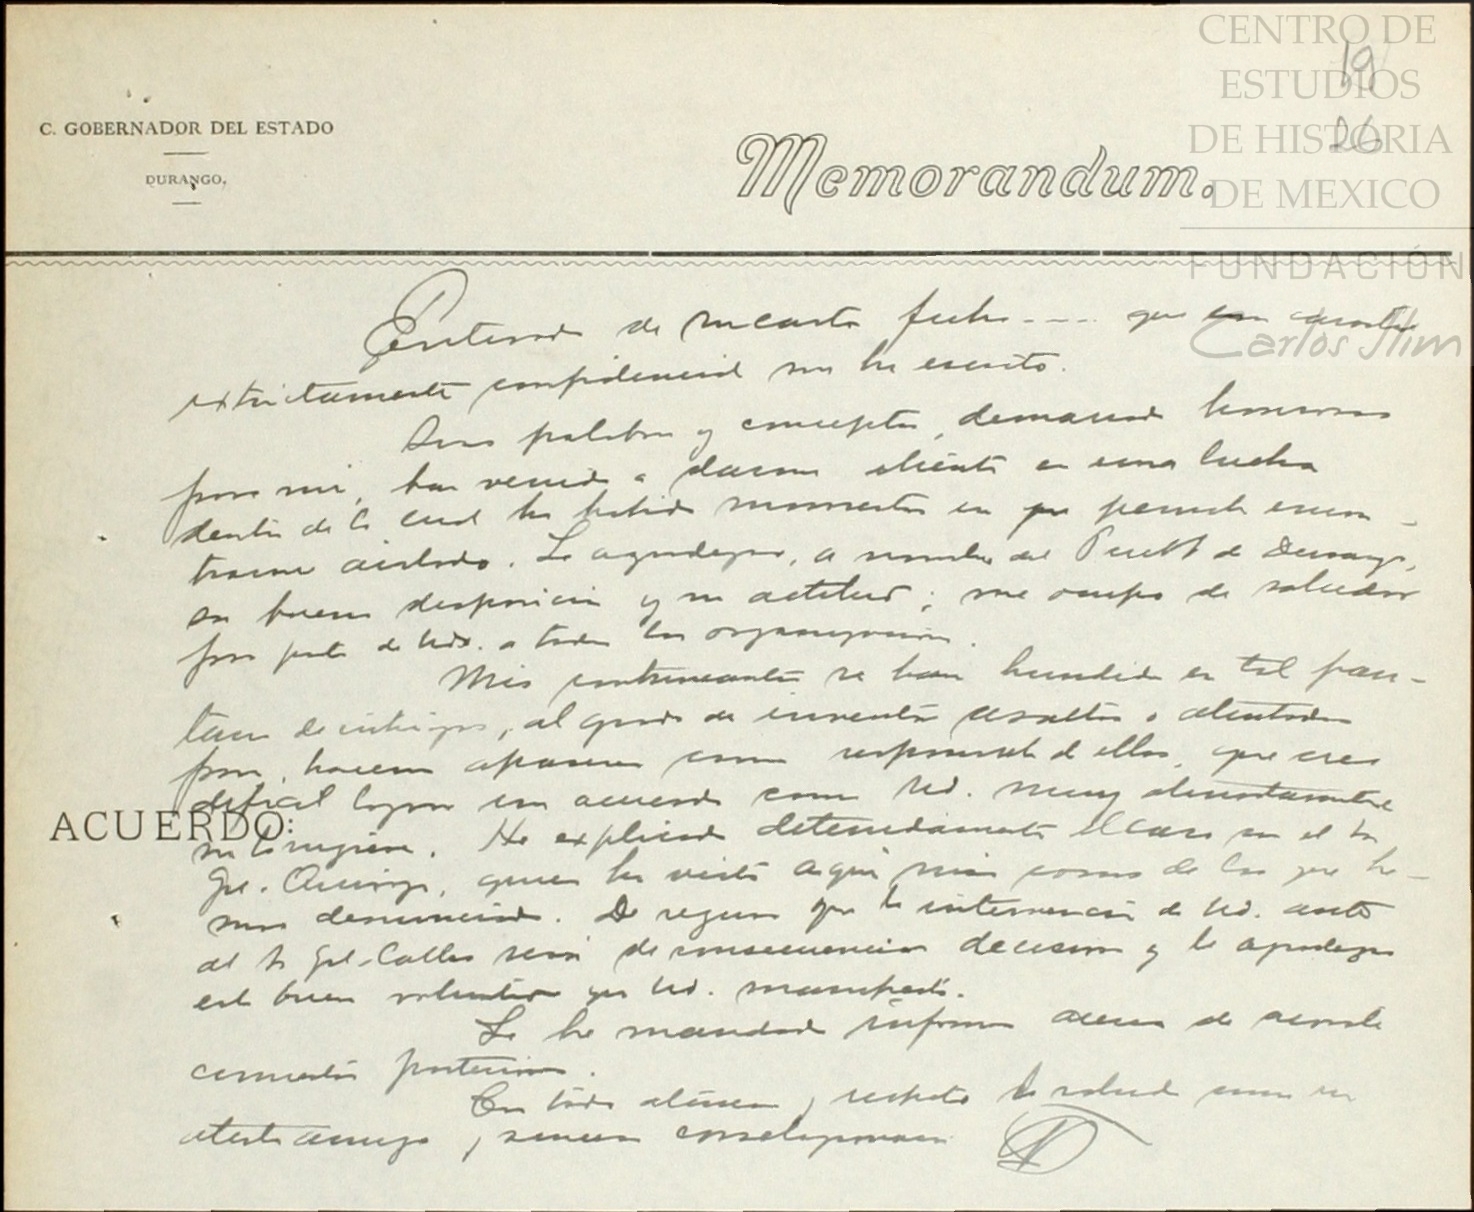 CENTRO DE
ESTUDIOS
DE HISTORIA
DE MEXICO
FUNDACIÓN
Carlos Slim
19
26
C. GOBERNADOR DEL ESTADO
DURANGO.
Memorandum.
Enterado de su carta fecha .... que con carácter
estrictamente confidencial me ha escrito.
Sus palabras y conceptos, demasiado honrosos
para mi, han venido a darme aliento en una lucha
dentro de la cual ha habido momentos en que encon-
trarme aislado. Le agradezco, a nombre del Pueblo de Durango,
su buena disposición y su actitud; me ocupo de saludar
por parte de Uds. a todas las organizaciones.
Mis contrincantes se han hundido en tal pan-
tano de intrigas, al grado de inventar asaltos o atentados
para hacerme aparecer como responsable de ellos, que creo
difícil lograr un acuerdo como Ud. muy atentamente
me lo sugiere. He explicado detenidamente el caso con el Sr
ACUERDO:
Gral. quien ha visto aquí más cosas de las que he-
mos denunciado. De seguro que la intervención de Ud. ante
el Sr Gral. Calles será de consecuencias decisivas y le agradezco
esta buena voluntad que Ud. manifiesta.
Le he mandado informes acerca de aconte-
cimientos posteriores.
En toda atención y respeto lo saludo como su
atento amigo y sincero correligionario